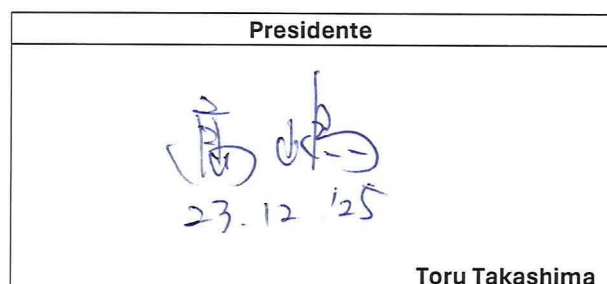 Presidente
高嶋
23.12 '25
Toru Takashima